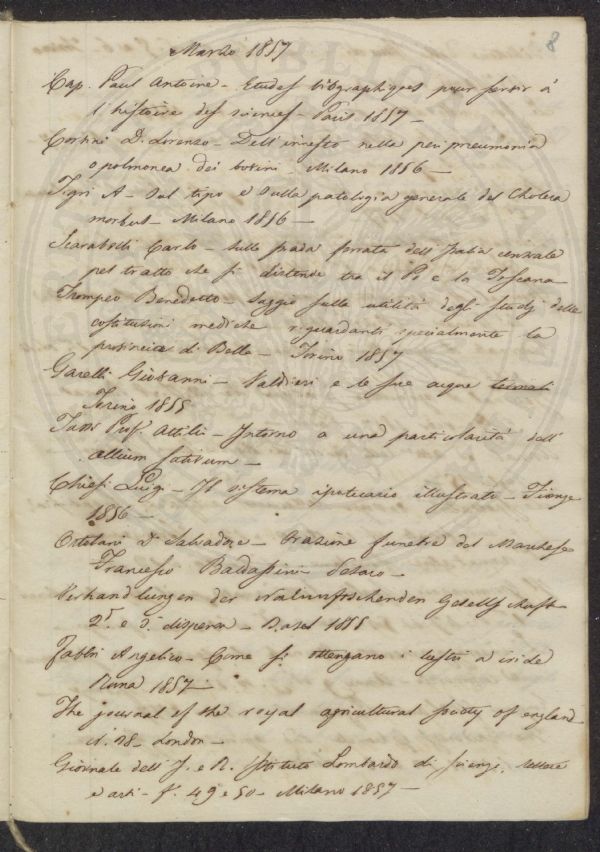 8
Marzo 1857
Cap. Paul Antoine - Etudes biographiques pour servir à
l'histoire des sciences - Paris 1857 -
Cortini D. Lorenzo - Dell'innesto nella peripneumonia
o polmonea dei bovini - Milano 1856 -
Tigri A - Sul tipo e sulla patologia generale del Cholera
morbus - Milano 1856 -
Scarabelli Carlo - Sulla strada ferrata dell'Italia centrale
pel tratto che si distende tra il Pò e la Toscana
Trompeo Benedetto - Saggio sulla utilità degli studj delle
costituzioni mediche riguardanti specialmente la
provincia di Biella - Torino 1857
Garelli Giovanni - Valdieri e le sue acque termali
Torino 1855
Tassi Prof. Attilio - Intorno a una particolarità dell'
allium sativum -
Chiesi Luigi - Il sistema ipotecario illustrato - Firenze
1856 -
Ortolani Dr Salvadore - Orazione funebre del Marchese
Francesco Baldassini - Pesaro -
Verhandlungen der Naturforschenden Gesellschaft
2ª e 3ª dispensa - Basel 1855
Fabbri Angelico - Come si ottengano i lustri a iride
Roma 1857 -
The journal of the royal agricultural society of england
N. 28 - London -
Giornale dell'I. e R. Istituto Lombardo di scienze, lettere
e arti - f. 49 e 50 - Milano 1857 -